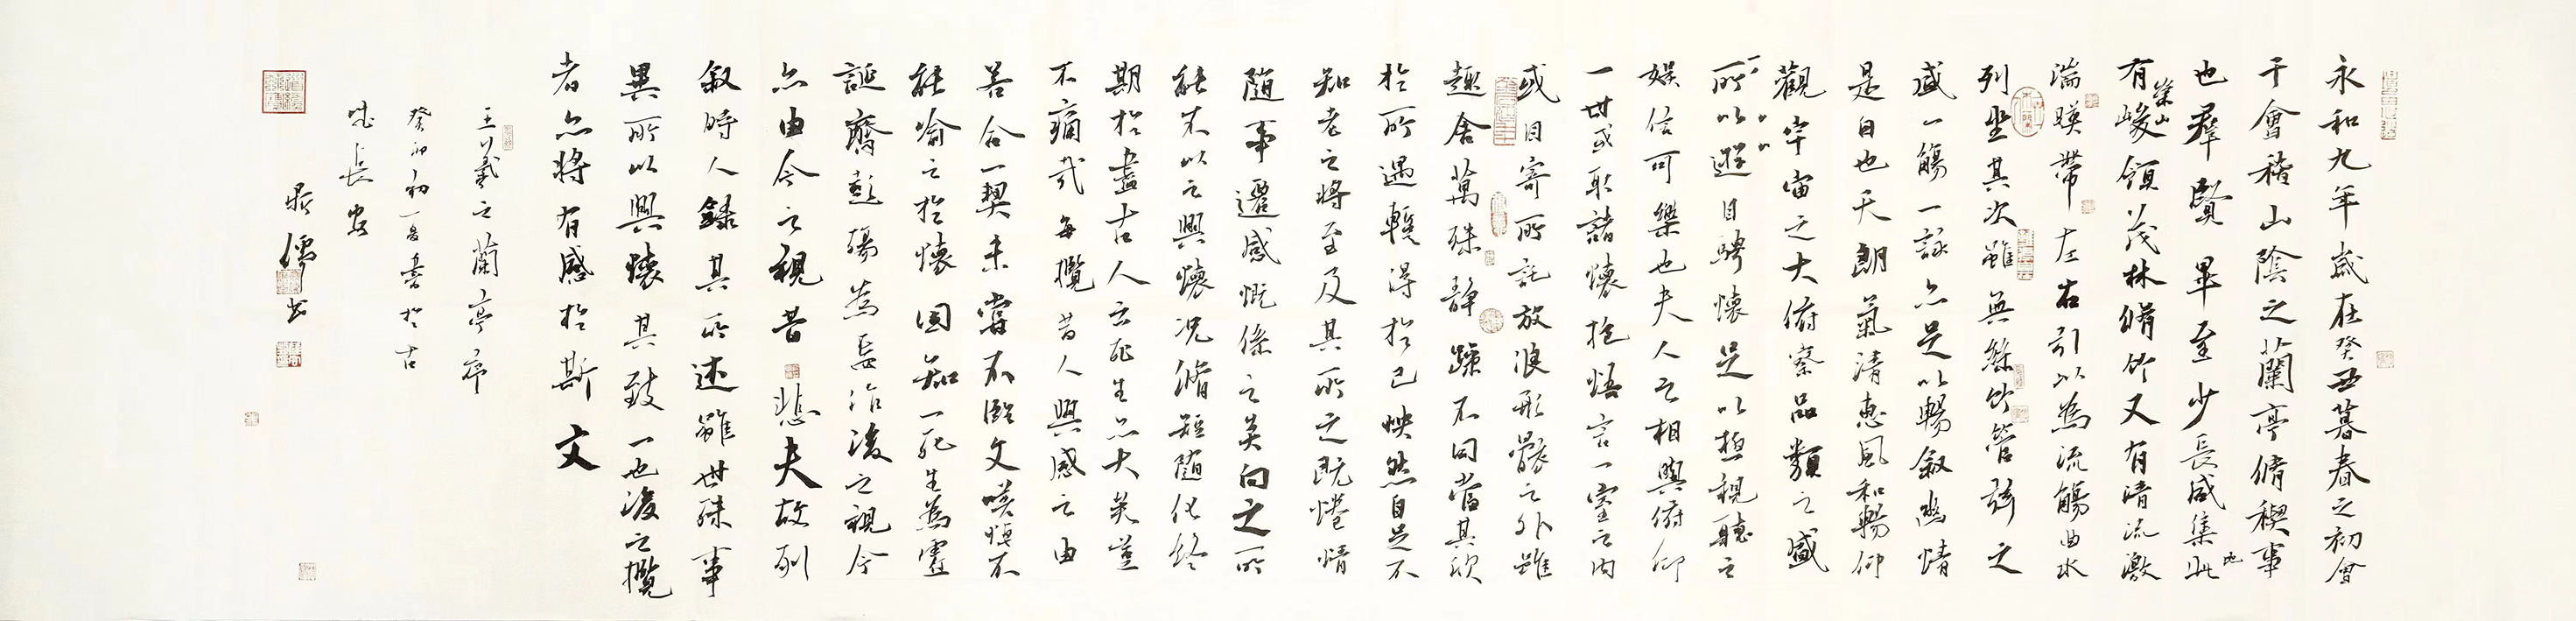 永和九年歲在癸丑暮春之初會
于會稽山陰之蘭亭脩稧事
也群賢畢至少長咸集此
地
有峻領茂林脩竹又有清流激
崇山
湍暎帶左右引以為流觴曲水
列坐其次雖無絲竹管弦之
盛一觴一詠亦足以暢敘幽情
是日也天朗氣清惠風和暢仰
觀宇宙之大俯察品類之盛
所以遊目騁懷足以極視聽之
娛信可樂也夫人之相與俯仰
一世或取諸懷抱悟言一室之內
或因寄所託放浪形骸之外雖
趣舍萬殊靜躁不同當其欣
於所遇輕得於己怏然自足不
知老之將至及其所之既惓情
隨事遷感慨係之矣向之所
能不以之興懷況脩短隨化終
期於盡古人云死生亦大矣豈
不痛哉每攬昔人興感之由
若合一契未嘗不臨文嗟悼不
能喻之於懷固知一死生為虛
誕齊彭殤為妄作後之視今
亦由今之視昔悲夫故列
敘時人錄其所述雖世殊事
異所以興懷其致一也後之攬
者亦將有感於斯文
王羲之蘭亭序
癸卯初夏書於古
長安